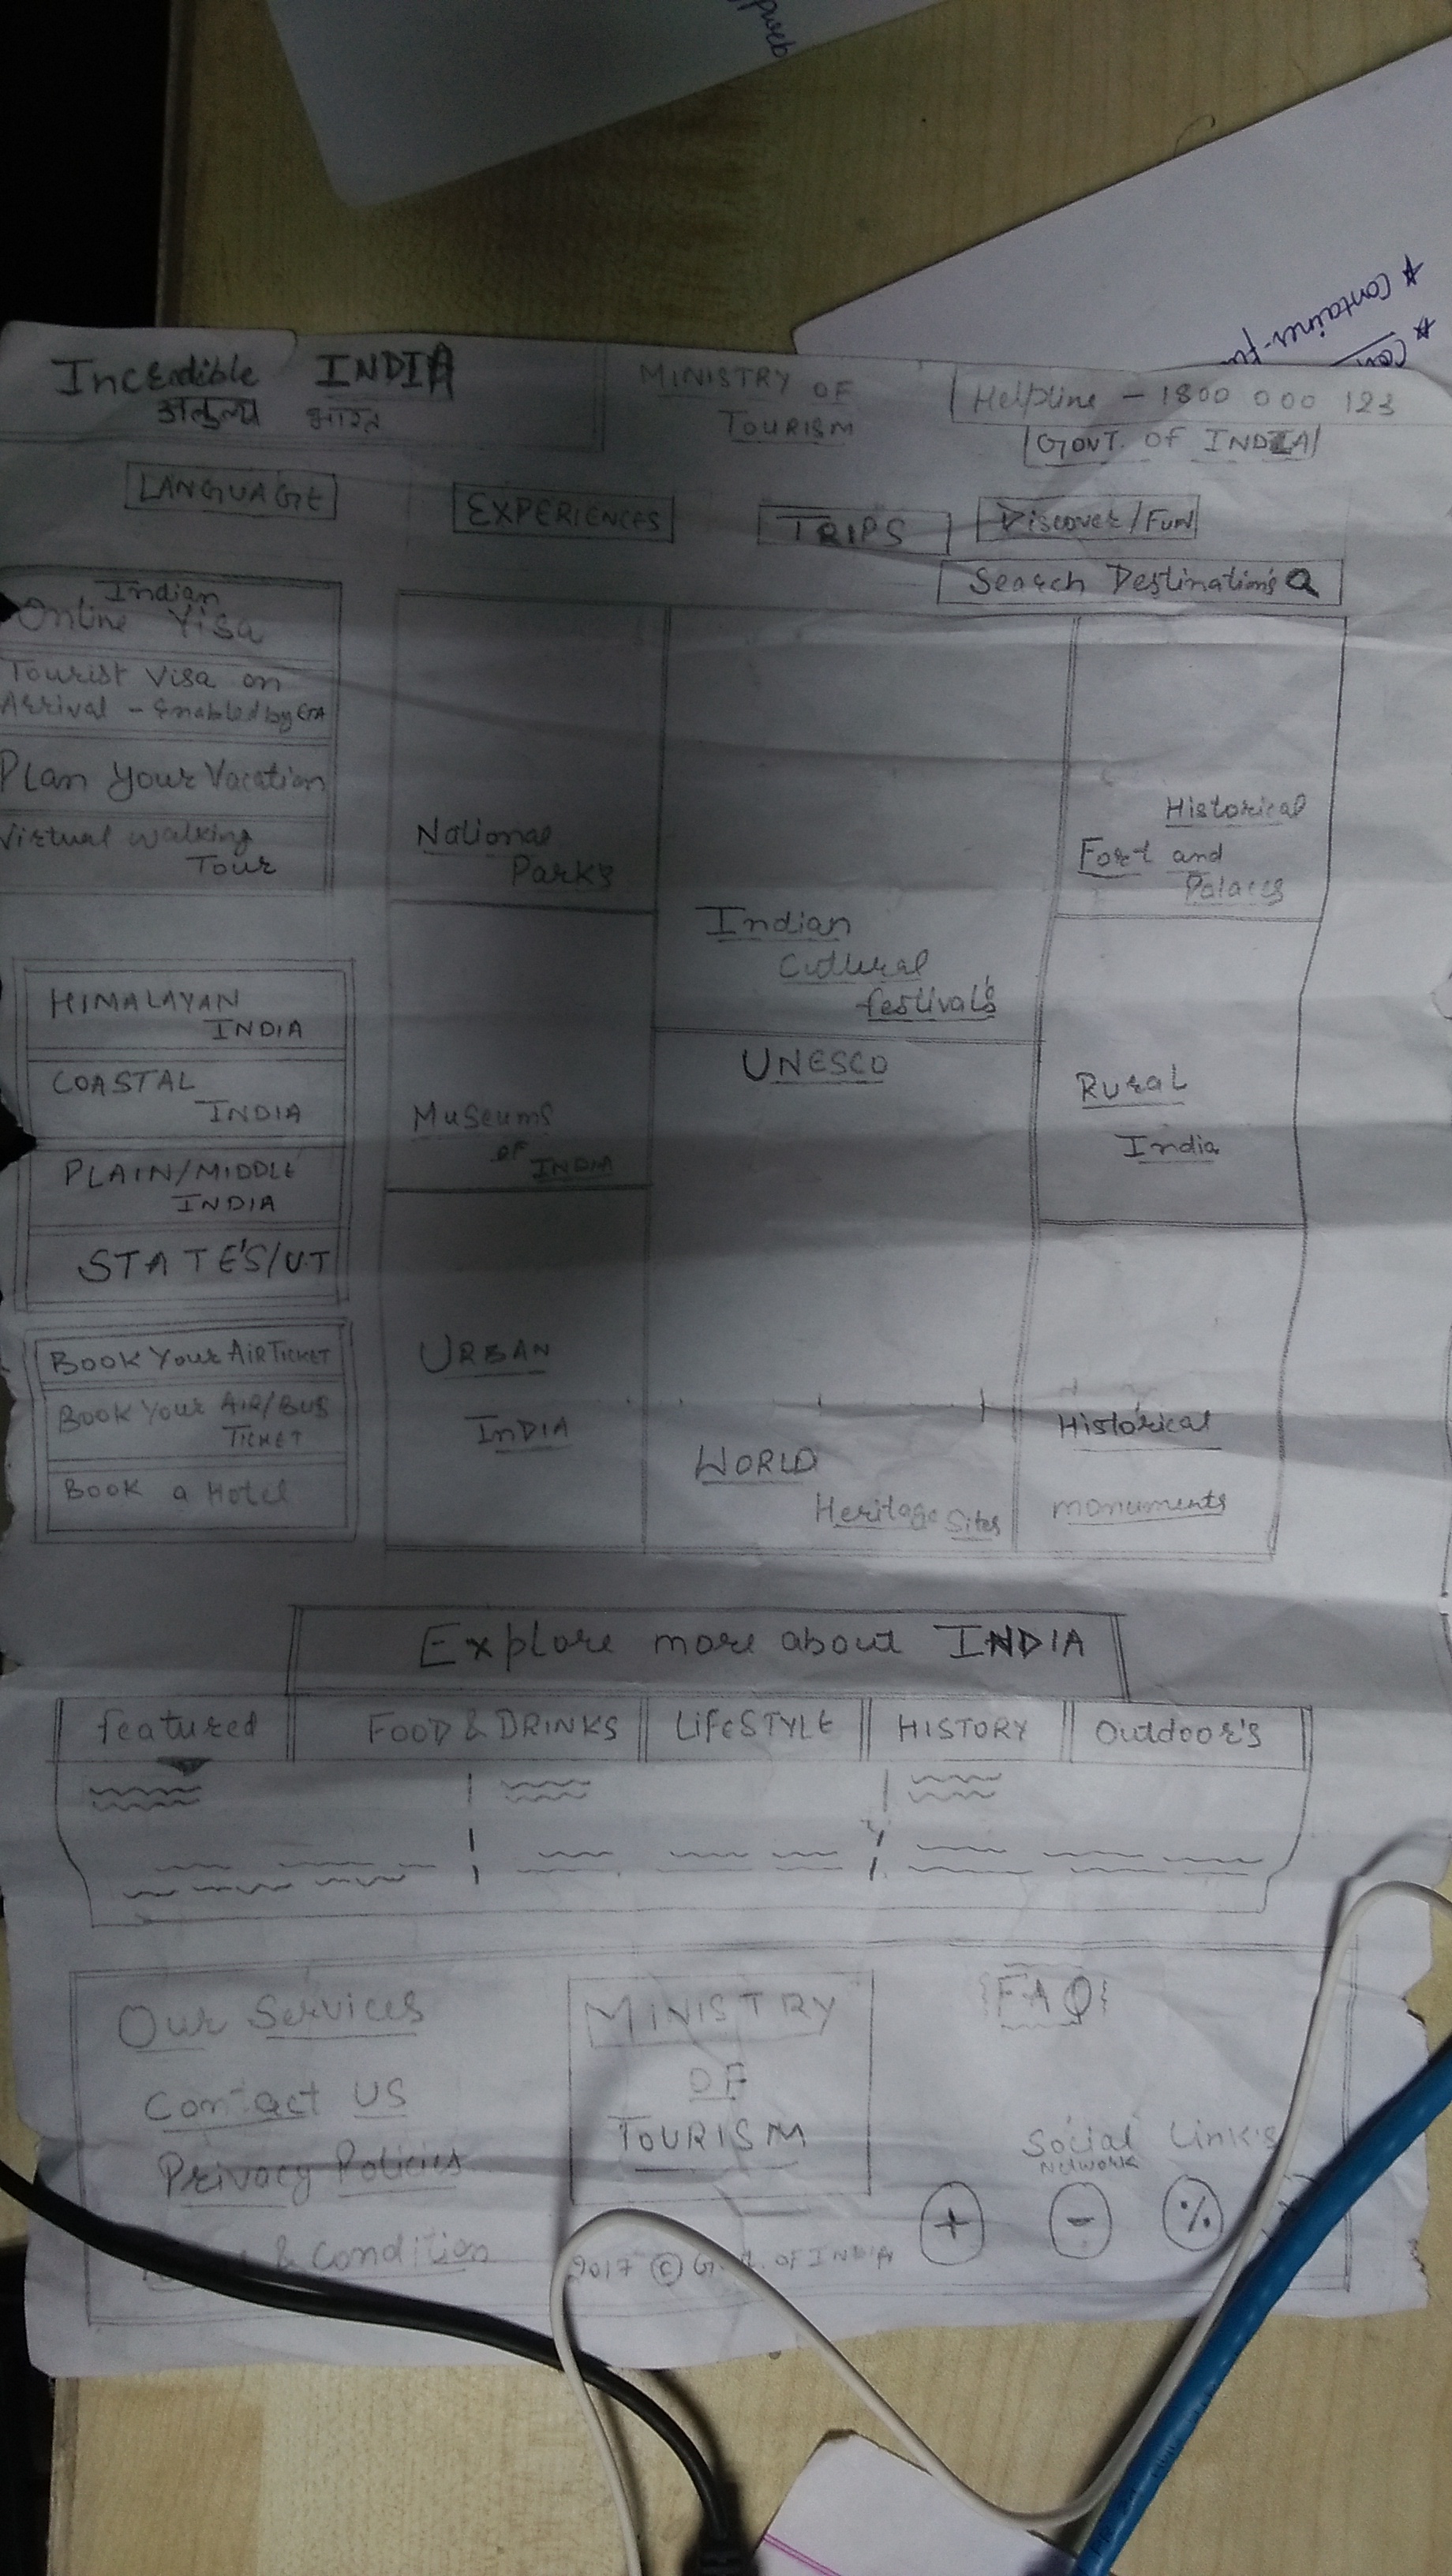 ypweb
* Container-flu
* Con
Incredible INDIA
अतुल्य भारत
MINISTRY OF
TOURISM
Helpline - 1800 000 123
GOVT. OF INDIA
LANGUAGE
EXPERIENCES
TRIPS
Discover/Fun
Search Destination's
Indian
Online Visa
Tourist Visa on
Arrival - Enabled by ETA
Plan Your Vacation
Virtual Walking
Tour
HIMALAYAN
INDIA
COASTAL
INDIA
PLAIN/MIDDLE
INDIA
STATE'S/U.T
BOOK Your AIR TICKET
BOOK Your AIR/BUS
TICKET
BOOK a Hotel
National
Park's
Museums
OF INDIA
URBAN
INDIA
Indian
Cultural
festival's
UNESCO
WORLD
Heritage Sites
Historical
Fort and
Palaces
Rural
India
Historical
monuments
Explore more about INDIA
featured
FOOD & DRINKS
LIFESTYLE
HISTORY
Outdoor's
Our Services
Contact US
Privacy Policies
& Condition
MINISTRY
OF
TOURISM
2017 © OF INDIA
FAQ
Social Link's
Network
+ - %